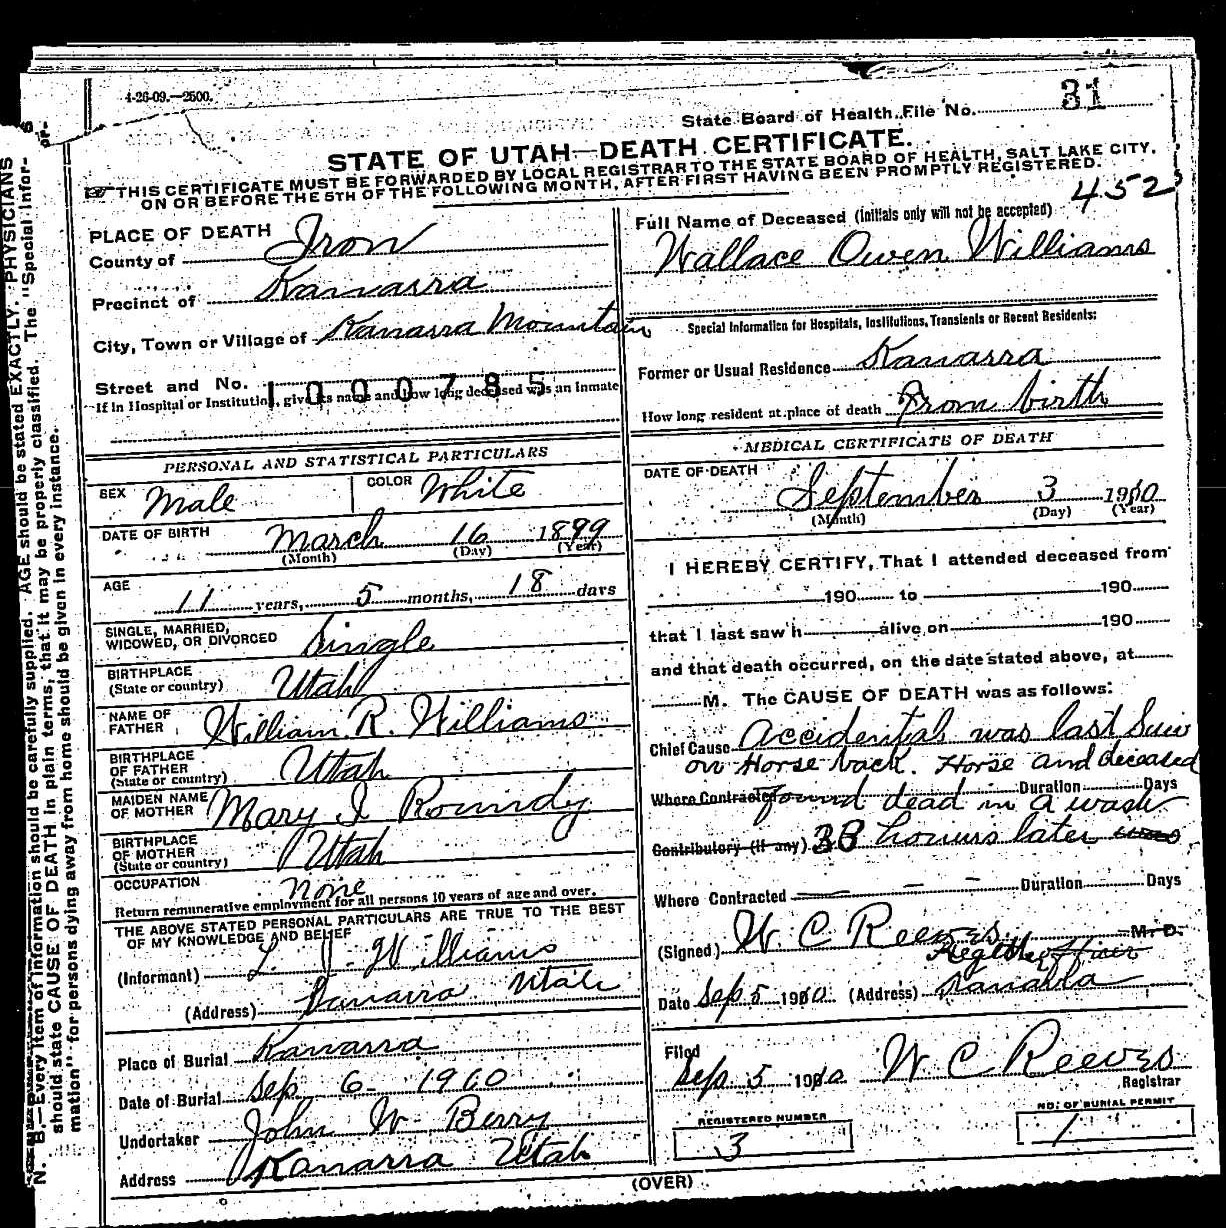 4-26-09.—2500.
State Board of Health File No. 31
STATE OF UTAH—DEATH CERTIFICATE.
THIS CERTIFICATE MUST BE FORWARDED BY LOCAL REGISTRAR TO THE STATE BOARD OF HEALTH, SALT LAKE CITY,
ON OR BEFORE THE 5TH OF THE FOLLOWING MONTH, AFTER FIRST HAVING BEEN PROMPTLY REGISTERED.
452
PLACE OF DEATH
County of Iron
Precinct of Kanarra
City, Town or Village of Kanarra Mountain
Street and No.
1000785
If in Hospital or Institution, give its name and how long deceased was an Inmate
PERSONAL AND STATISTICAL PARTICULARS
SEX Male COLOR White
DATE OF BIRTH March 16 1899
(Month) (Day) (Year)
AGE 11 years, 5 months, 18 days
SINGLE, MARRIED,
WIDOWED, OR DIVORCED Single
BIRTHPLACE
(State or country) Utah
NAME OF
FATHER William R. Williams
BIRTHPLACE
OF FATHER
(State or country) Utah
MAIDEN NAME
OF MOTHER Mary I Roundy
BIRTHPLACE
OF MOTHER
(State or country) Utah
OCCUPATION none
Return remunerative employment for all persons 10 years of age and over.
THE ABOVE STATED PERSONAL PARTICULARS ARE TRUE TO THE BEST
OF MY KNOWLEDGE AND BELIEF
(Informant) Williams
(Address) Kanarra Utah
Place of Burial Kanarra
Date of Burial Sep. 6 1910
Undertaker John W Berry
Address Kanarra Utah
Full Name of Deceased (Initials only will not be accepted)
Wallace Owen Williams
Special Information for Hospitals, Institutions, Transients or Recent Residents:
Former or Usual Residence Kanarra
How long resident at place of death From birth
MEDICAL CERTIFICATE OF DEATH
DATE OF DEATH
September 3 1910
(Month) (Day) (Year)
I HEREBY CERTIFY, That I attended deceased from
190 to 190
that I last saw h alive on 190
and that death occurred, on the date stated above, at
M. The CAUSE OF DEATH was as follows:
Chief Cause Accidental was last Seen
on Horse back. Horse and deceased
Where Contracted Duration Days
found dead in a wash
Contributory (if any) 38 hours later
Where Contracted Duration Days
(Signed) W C Reeves M. D.
Date Sep 5 1910 (Address) Kanarra
Filed
Sep. 5 1910 W C Reeves
Registrar
REGISTERED NUMBER
3
NO. OF BURIAL PERMIT
1
(OVER)
N. B.—Every item of information should be carefully supplied. AGE should be stated EXACTLY. PHYSICIANS
should state CAUSE OF DEATH in plain terms, that it may be properly classified. The "Special Infor-
mation" for persons dying away from home should be given in every instance.